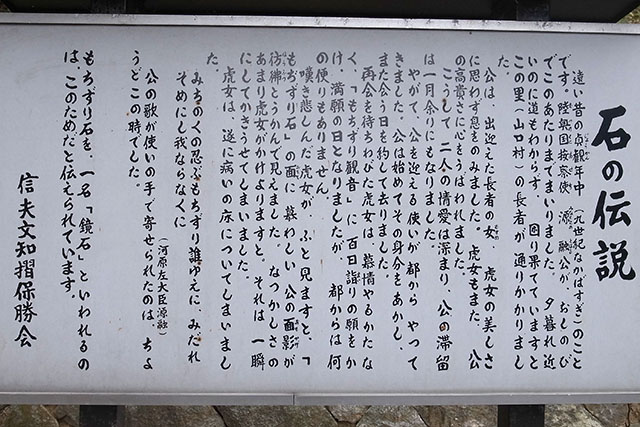 石の伝説
遠い昔の貞観年中(九世紀なかばすぎ)のこと
です。陸奥国按察使 源融公が、おしのび
でこのあたりまでまいりました。夕暮れ近
いのに道もわからず、困り果てていますと
この里(山口村)の長者が通りかかりまし
た。
公は、出迎えた長者の女、虎女の美しさ
に思わず息をのみました。虎女もまた、公
の高貴さに心をうばわれました。
こうして二人の情愛は深まり、公の滞留
は一月余りにもなりました。
やがて、公を迎える使いが都からやって
きました。公は始めてその身分をあかし、
また会う日を約して去りました。
再会を待ちわびた虎女は、慕情やるかたな
く、「もちずり観音」に百日詣りの願をか
け、満願の日となりましたが、都からは何
の便りもありません。
嘆き悲しんだ虎女が、ふと見ますと、「
もちずり石」の面に慕わしい公の面影が
彷彿とうかんで見えました。なつかしさの
あまり虎女がかけよりますと、それは一瞬
にしてかきうせてしまいました。
虎女は、遂に病いの床についてしまいまし
た。
みちのくの忍ぶもちずり誰ゆえに、みだれ
そめにし我ならなくに
(河原左大臣源融)
公の歌が使いの手で寄せられたのは、ちょ
うどこの時でした。
もちずり石を、一名「鏡石」といわれるの
は、このためだと伝えられています。
信夫文知摺保勝会